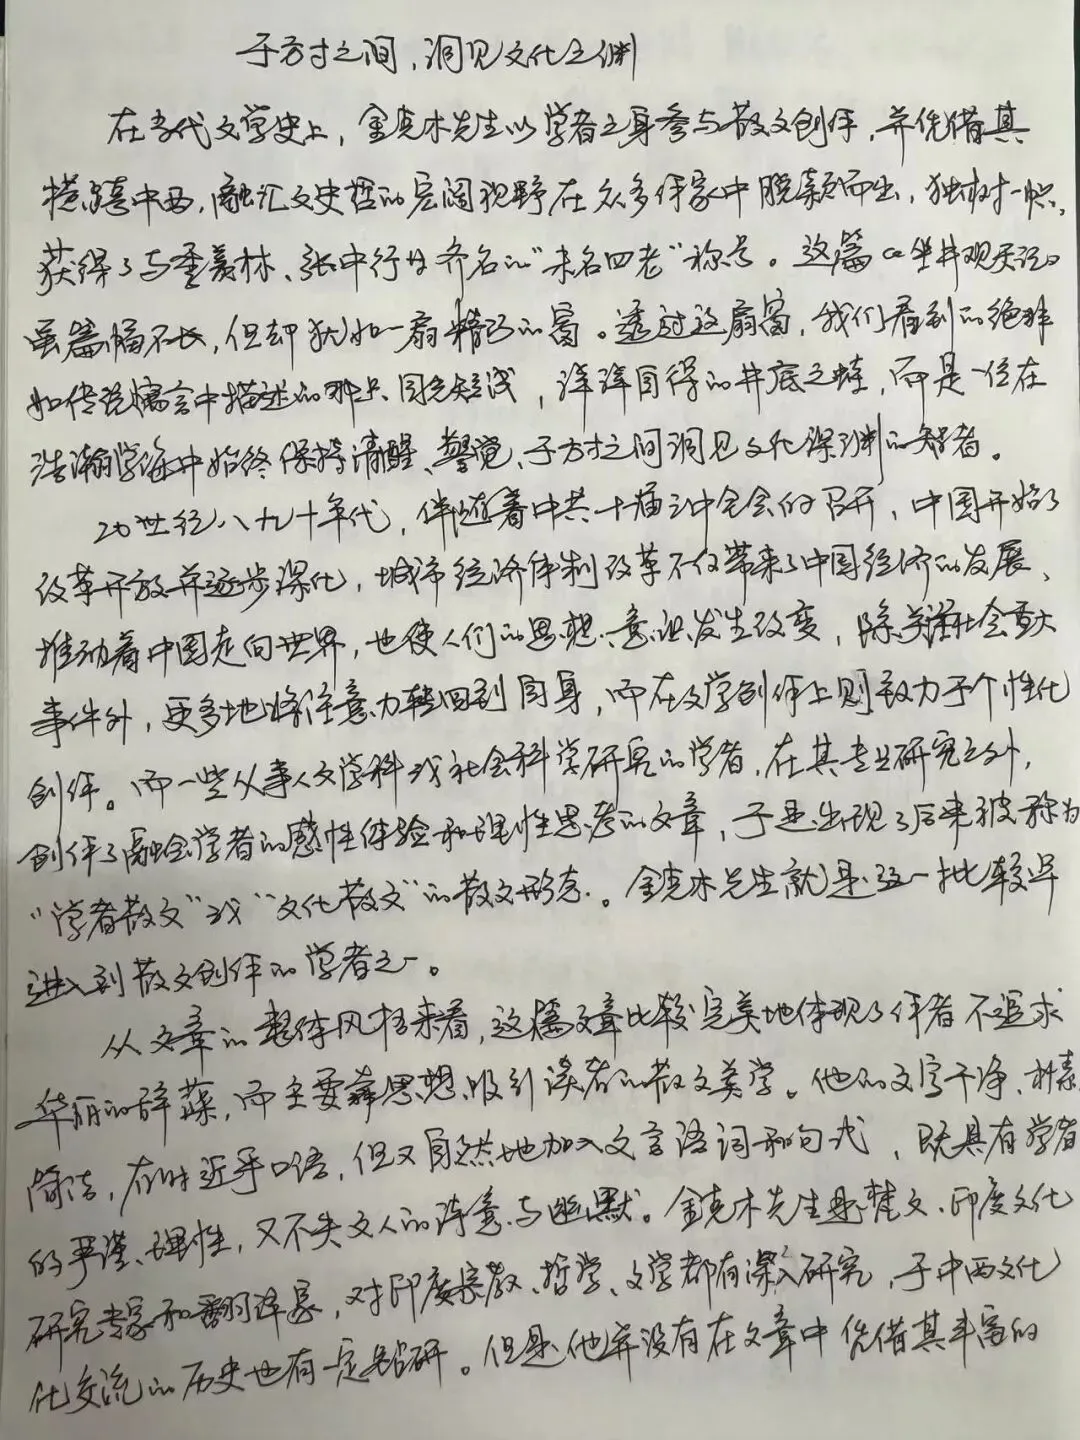 于方寸之间，洞见文化之渊
在当代文学史上，金克木先生以学者之身参与散文创作，并凭借其
横跨中西，融汇文史哲的宏阔视野在众多作家中脱颖而出，独树一帜，
获得了与季羡林、张中行等齐名的“未名四老”称号。这篇《坐井观天记》
虽篇幅不长，但却犹如一扇精巧的窗。透过这扇窗，我们看到的绝非
如传统寓言中描述的那只目光短浅，洋洋自得的井底之蛙，而是一位在
浩瀚学海中始终保持清醒、警觉、于方寸之间洞见文化深渊的智者。
20世纪八九十年代，伴随着中共十届三中全会的召开，中国开始了
改革开放并逐步深化，城市经济体制改革不仅带来了中国经济的发展、
推动着中国走向世界，也使人们的思想、意识发生改变，除关注社会重大
事件外，更多地将注意力转回到自身，而在文学创作上则致力于个性化
创作。而一些从事人文学科或社会科学研究的学者，在其专业研究之外，
创作了融会学者的感性体验和理性思考的文章，于是出现了后来被称为
“学者散文”或“文化散文”的散文形态。金克木先生就是这一批比较早
进入到散文创作的学者之一。
从文章的整体风格来看，这篇文章比较完美地体现了作者不追求
华丽的辞藻，而主要靠思想吸引读者的散文美学。他的文字干净、朴素、
简洁，有时近乎口语，但又自然地加入文言语词和句式，既具有学者
的严谨、理性，又不失文人的诗意与幽默。金克木先生是梵文、印度文化
研究专家和翻译家，对印度宗教、哲学、文学都有深入研究，于中西文化
化交流的历史也有一定钻研。但是他并没有在文章中凭借其丰富的